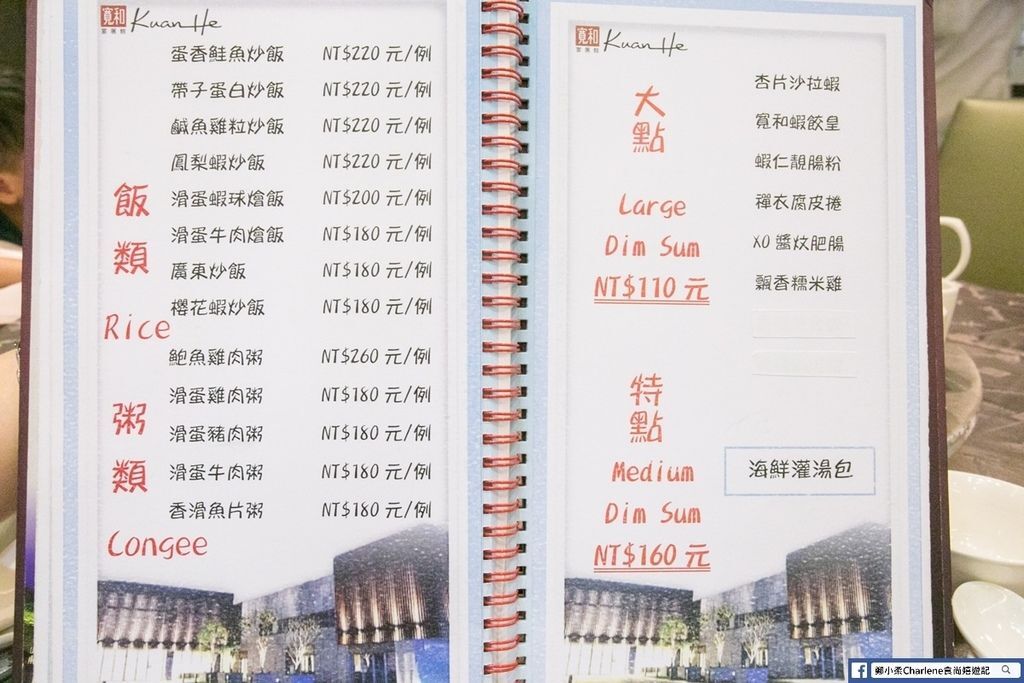 寬和
宴展館
Kuan He
飯類
Rice
蛋香鮭魚炒飯 NT$220 元/例
帶子蛋白炒飯 NT$220 元/例
鹹魚雞粒炒飯 NT$220 元/例
鳳梨蝦炒飯 NT$220 元/例
滑蛋蝦球燴飯 NT$200 元/例
滑蛋牛肉燴飯 NT$180 元/例
廣東炒飯 NT$180 元/例
櫻花蝦炒飯 NT$180 元/例
粥類
Congee
鮑魚雞肉粥 NT$260 元/例
滑蛋雞肉粥 NT$180 元/例
滑蛋豬肉粥 NT$180 元/例
滑蛋牛肉粥 NT$180 元/例
香滑魚片粥 NT$180 元/例
寬和
宴展館
Kuan He
大點
Large
Dim Sum
NT$110 元
杏片沙拉蝦
寬和蝦餃皇
蝦仁靚腸粉
禪衣腐皮捲
XO 醬炆肥腸
飄香糯米雞
特點
Medium
Dim Sum
NT$160 元
海鮮灌湯包
鄭小柔Charlene食尚嬉遊記